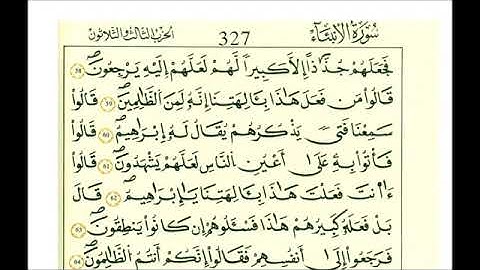 الحزب الثالث والثلاثون 327 سُورَةُ الأَنبِيَاءِ
فَجَعَلَهُمْ جُذَٰذًا إِلَّا كَبِيرًا لَّهُمْ لَعَلَّهُمْ إِلَيْهِ يَرْجِعُونَ ۖ 58
قَالُوا مَن فَعَلَ هَٰذَا بِـَٔالِهَتِنَا إِنَّهُ لَمِنَ ٱلظَّٰلِمِينَ ۖ 59 قَالُوا
سَمِعْنَا فَتًى يَذْكُرُهُمْ يُقَالُ لَهُ إِبْرَٰهِيمُ ۖ 60 قَالُوا
فَأْتُوا بِهِ عَلَىٰ أَعْيُنِ ٱلنَّاسِ لَعَلَّهُمْ يَشْهَدُونَ ۖ 61 قَالُوا
ءَٰانتَ فَعَلْتَ هَٰذَا بِـَٔالِهَتِنَا يَٰإِبْرَٰهِيمُ ۖ 62 قَالَ
بَلْ فَعَلَهُ كَبِيرُهُمْ هَٰذَا فَسْـَٔلُوهُمْ إِن كَانُوا يَنطِقُونَ ۖ 63
فَرَجَعُوا إِلَىٰ أَنفُسِهِمْ فَقَالُوا إِنَّكُمْ أَنتُمُ ٱلظَّٰلِمُونَ ۖ 64